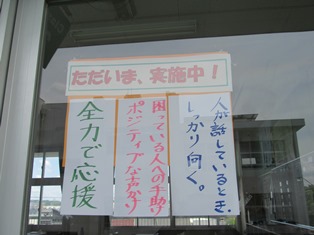 ただいま、実施中！
人が話しているとき、
しっかり向く。
困っている人への手助け
ポジティブな声かけ
全力で応援